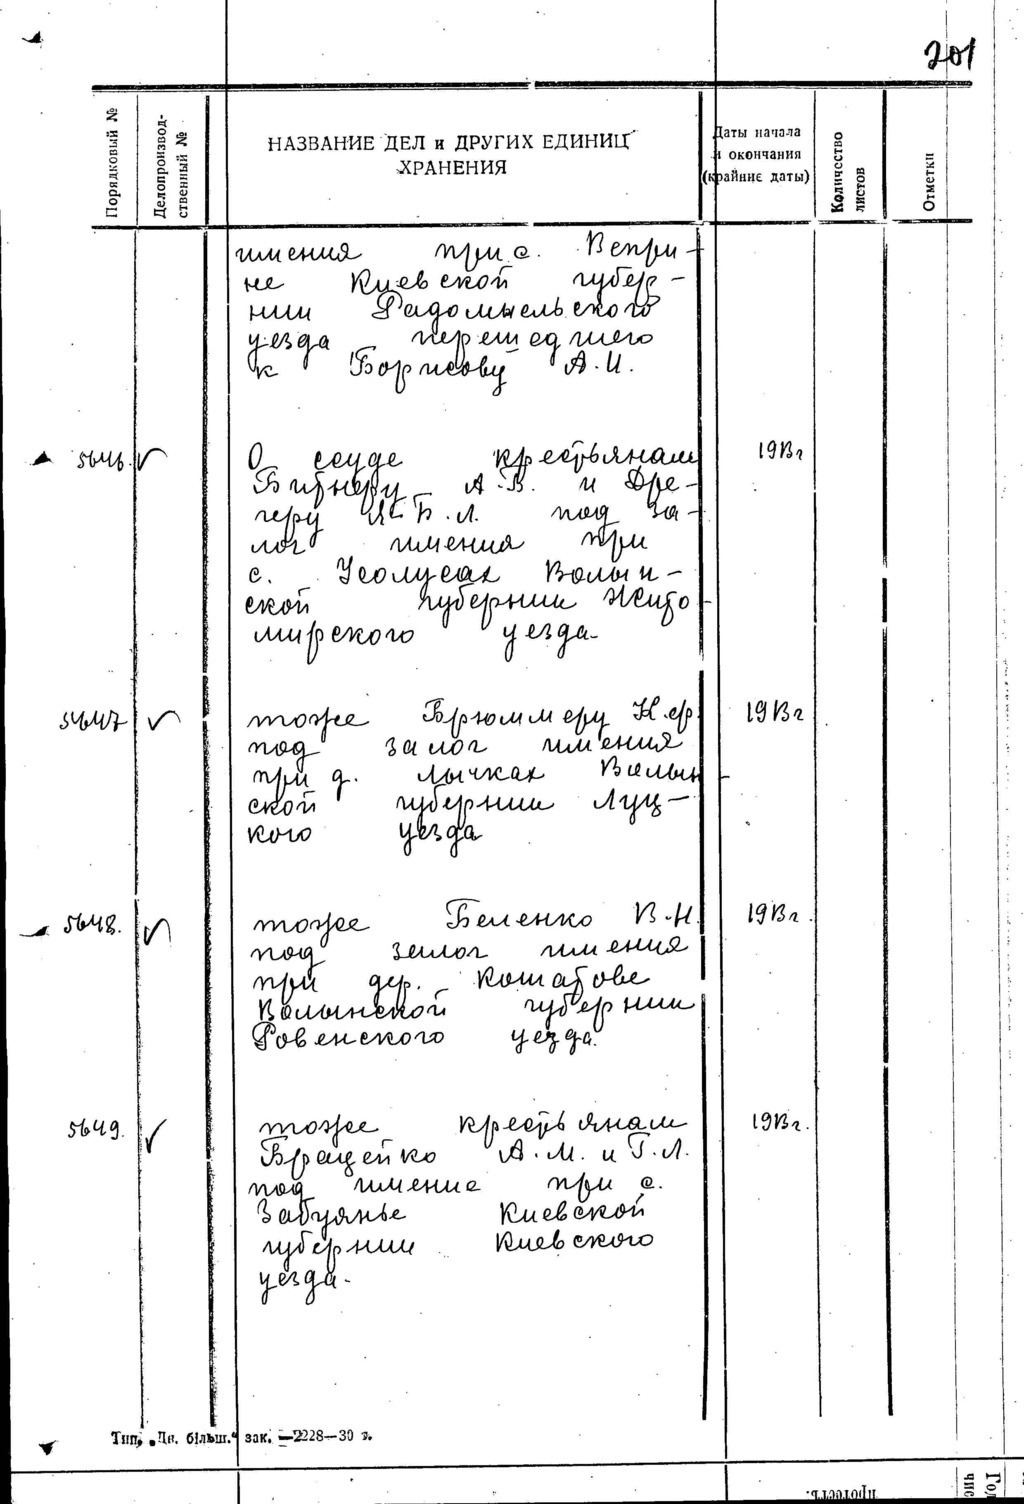 201
Порядковый №
Делопроизвод-
ственный №
НАЗВАНИЕ ДЕЛ и ДРУГИХ ЕДИНИЦ
ХРАНЕНИЯ
Даты начала
и окончания
(крайние даты)
Количество
листов
Отметки
имения при с. Вепри-
не Киевской губер-
нии Радомысльского
уезда перешедшего
к Борисову А.И.
5646. О ссуде крестьянам 1913г
Битнеру А.В. и Дре-
геру Б.Л. под за-
лог имения при
с. Усолусах Волын-
ской губернии Жито-
мирского уезда.
5647 тоже Брюммеру Н.Ф. 1913г
под залог имения
при д. Лычках Волын-
ской губернии Луц-
кого уезда
5648. тоже Беленко В.Н. 1913г.
под залог имения
при дер. Кошатове
Волынской губернии
Ровенского уезда.
5649. тоже крестьянам 1913г.
Брацейко А.М. и Г.Л.
под имение при с.
Забуянье Киевской
губернии Киевского
уезда.
Тип. „Дв. більш.“ зак. —2228—30 г.
протестъ.
Год
чис